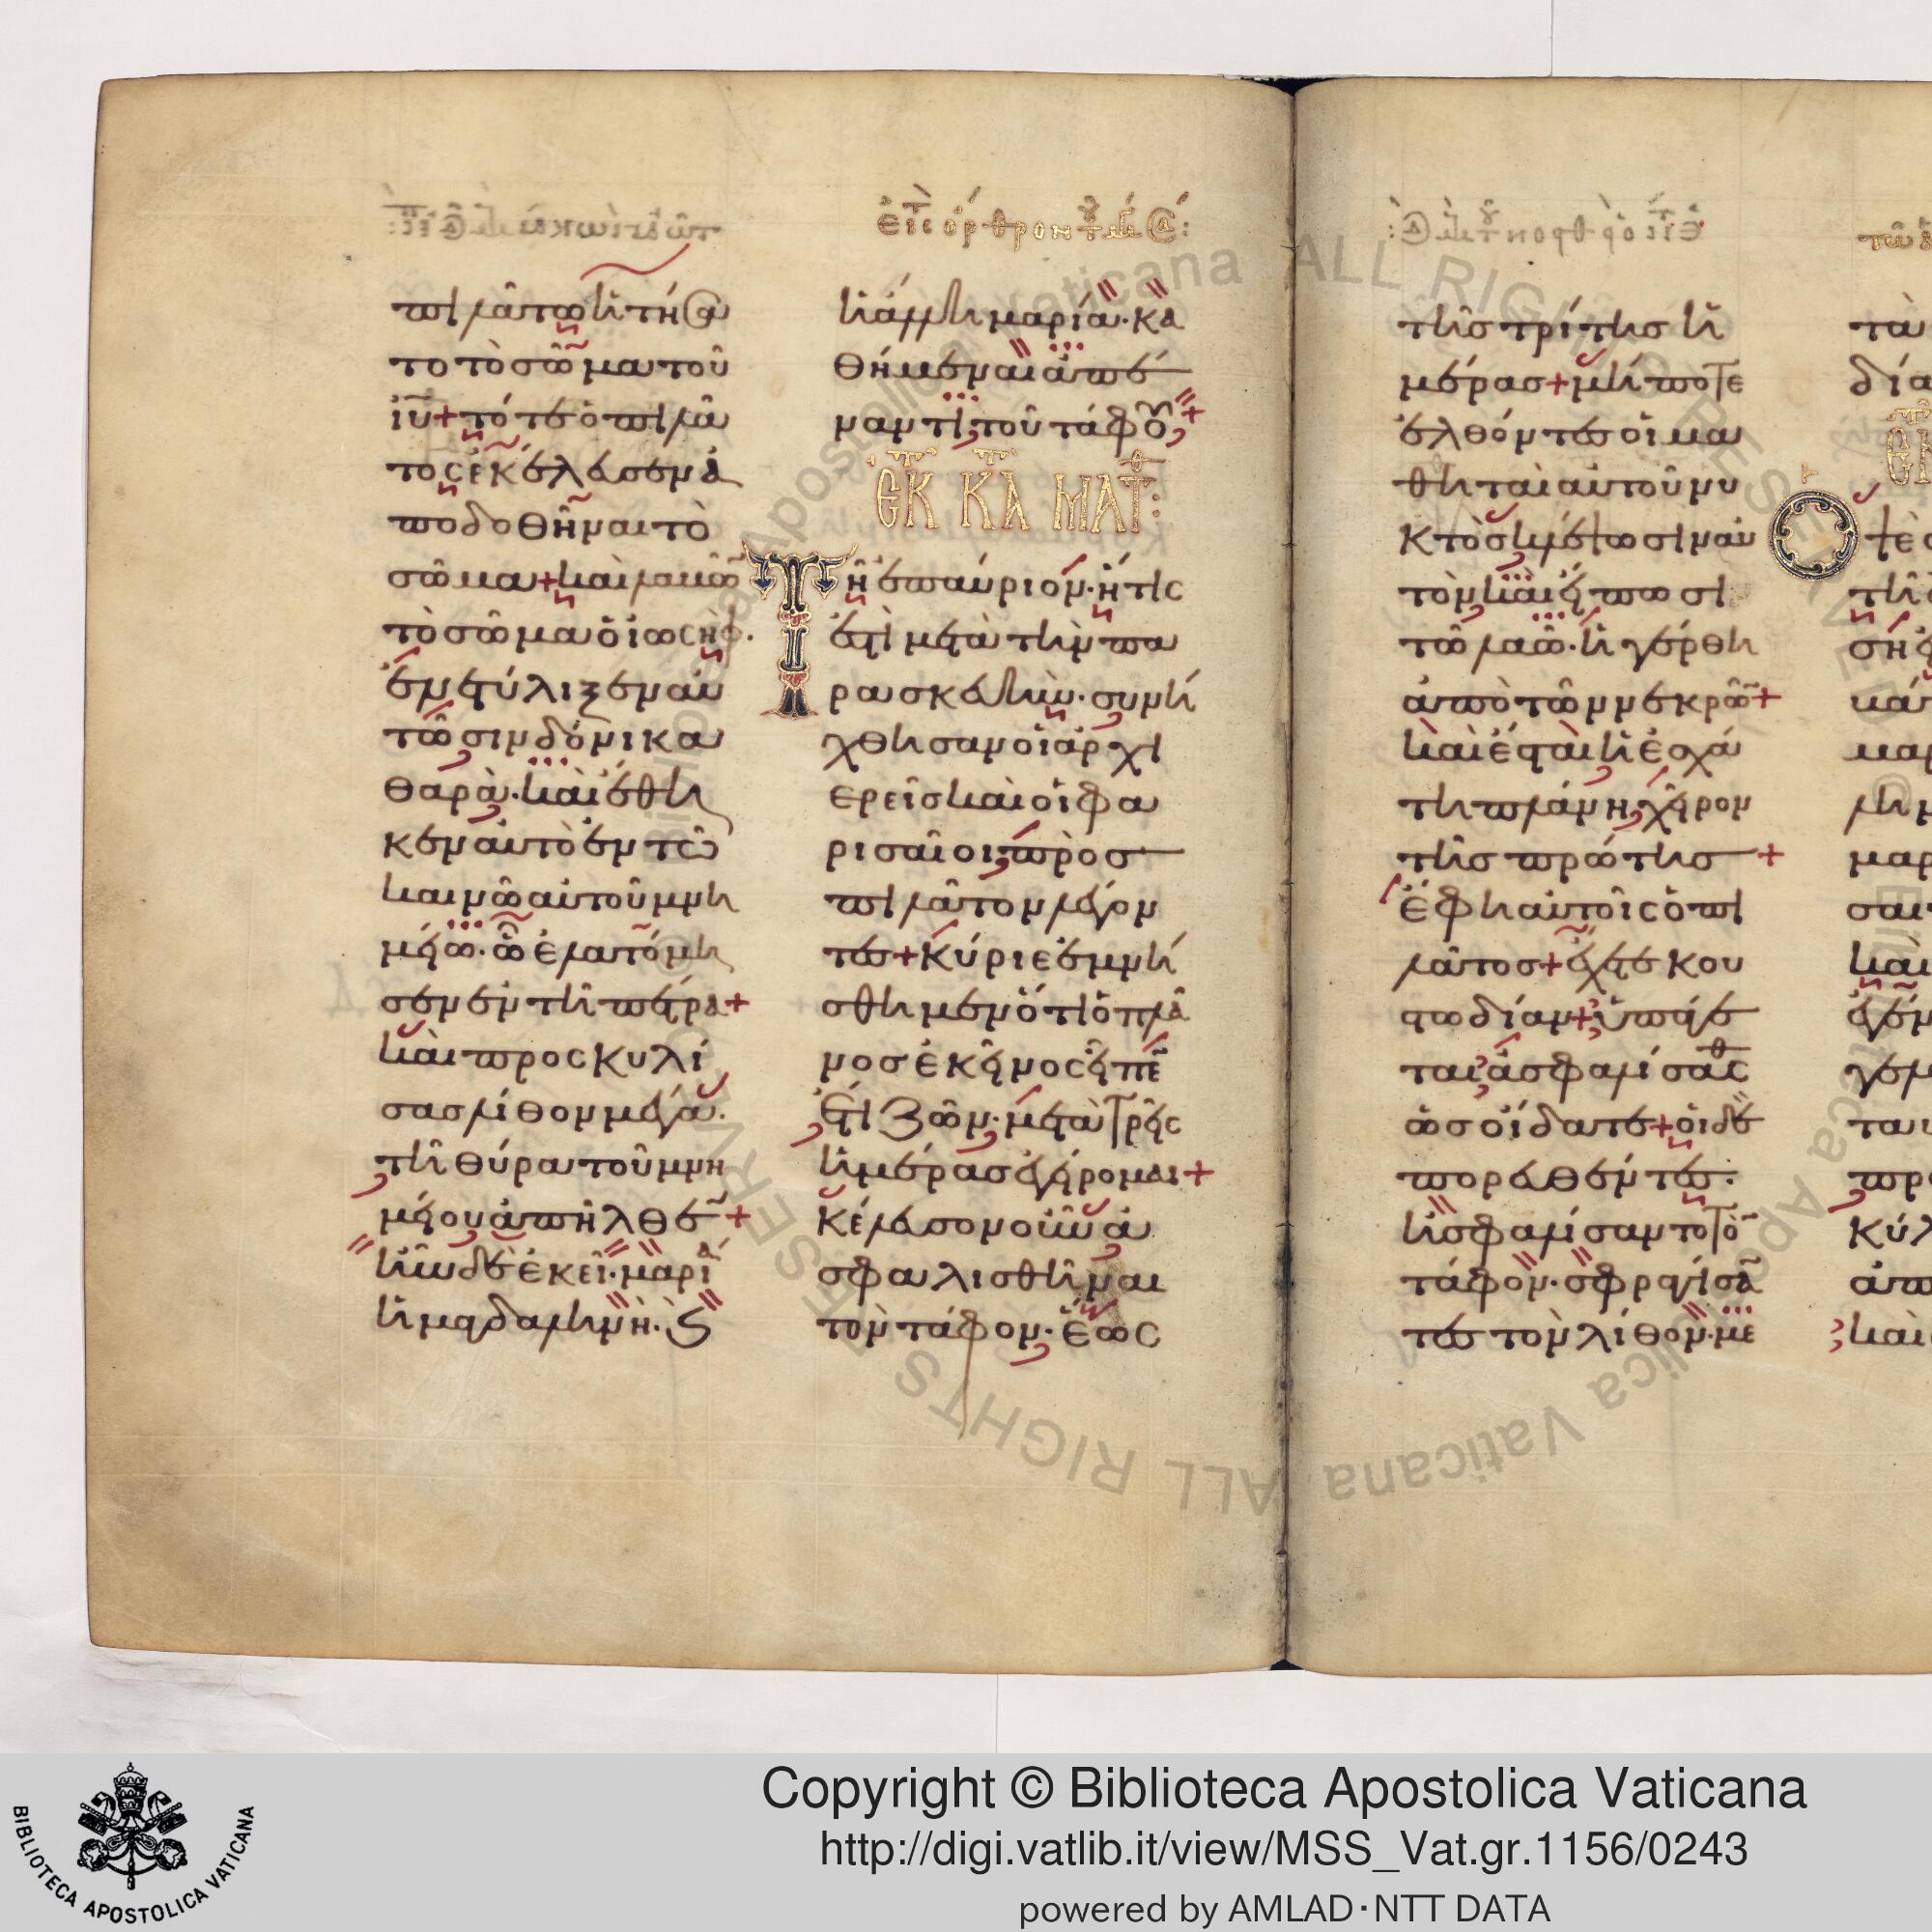 πιλάτω ἠτήσα
το τὸ σῶμα τοῦ
ἰῦ + τότε ὁ πιλᾶ
τος ἐκέλευσεν ἀ
ποδοθῆναι τὸ
σῶμα + καὶ λαβὼ
τὸ σῶμα ὁ ἰωσὴφ.
ἐνετύλιξεν αὐ
τῶ σινδόνι κα
θαρᾶ· καὶ ἔθη
κεν αὐτὸ ἐν τῶ
καινῶ αὐτοῦ μνη
μείω· ὧ ἐλατόμη
σεν ἐν τῆ πέτρα +
καὶ προσκυλί
σας λίθον μέγα.
τῆ θύρα τοῦ μνη
μείου ἀπῆλθε +
ἦν δὲ ἐκεῖ· μαρία
ἡ μαγδαληνὴ· ϗ
εἰς ὄρθρον τ
ἡ ἄλλη μαρία· κα
θήμεναι ἀπέ
ναντι τοῦ τάφου +
ἐκ κα ματ:
Τῆ ἐπαύριον· ἥτις
ἐστὶ μετὰ τὴν πα
ρασκευὴν· συνή
χθησαν οἱ ἀρχι
ερεῖς καὶ οἱ φα
ρισαῖοι πρὸς
πιλᾶτον λέγον
τες + Κύριε ἐμνή
σθημεν ὅτι ὁ πλά
νος ἐκεῖνος εἶπε
ἔτι ζῶν· μετὰ τρεῖς
ἡμέρας ἐγείρομαι +
κέλευσον οὖν ἀ
σφαλισθῆναι
τὸν τάφον· ἕως
τῆς τρίτης ἡ
μέρας + μήποτε
ἐλθόντες οἱ μα
θηταὶ αὐτοῦ νυ
κτὸς κλέψωσιν αὐ
τὸν καὶ εἴπωσι
τῶ λαῶ· ἠγέρθη
ἀπὸ τῶν νεκρῶ +
καὶ ἔσται ἡ ἐσχά
τη πλάνη χεῖρον
τῆς πρώτης +
ἔφη αὐτοῖς ὁ πι
λᾶτος + ἔχετε κου
στωδίαν + ὑπάγε
ται ἀσφαλίσασθε
ὡς οἴδατε + οἱ δὲ
πορευθέντες.
ἠσφαλίσαντο τὸ
τάφον· σφραγίσα
τες τὸν λίθον· με
τὰ
δία
ἐκ
Ὅτε
τῆς
ση
κά
μαρ
λη
μαρ
σαι
καὶ
ταυ
πρ
κύλ
ἀπ
καὶ
BIBLIOTECA APOSTOLICA VATICANA
Copyright © Biblioteca Apostolica Vaticana
http://digi.vatlib.it/view/MSS_Vat.gr.1156/0243
powered by AMLAD·NTT DATA